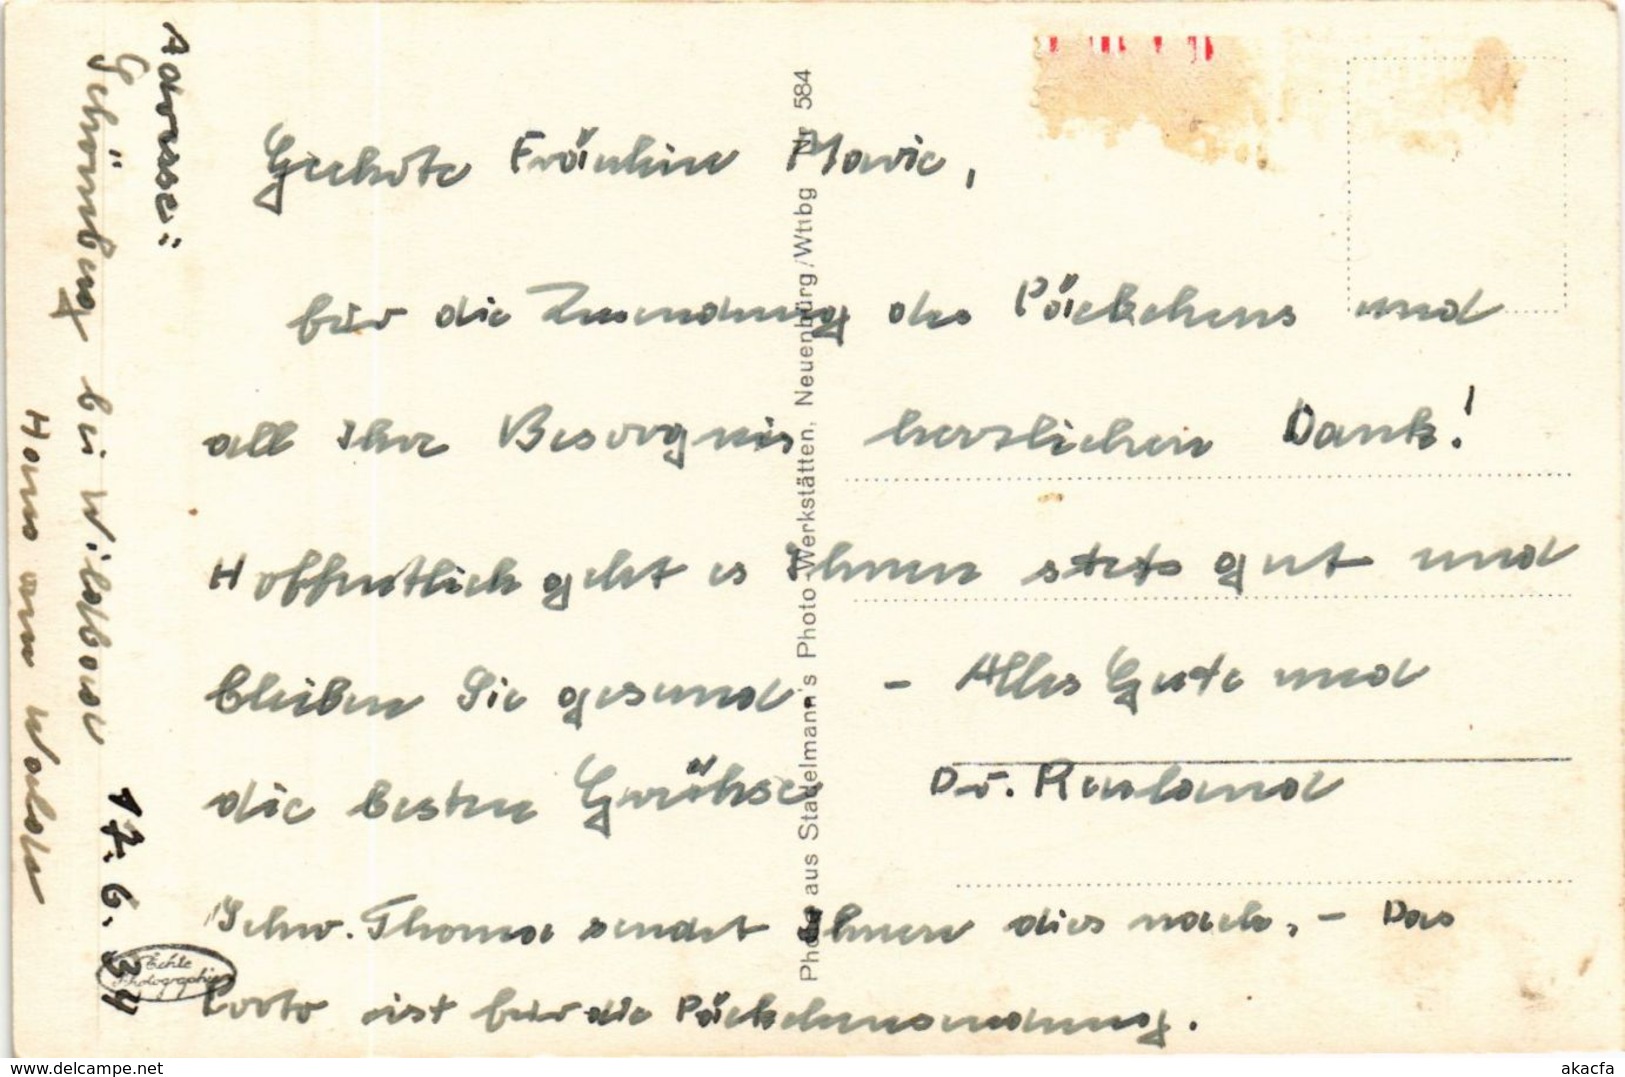 Geehrte Fräulein Marie,
für die Zusendung des Päckchens und
all Ihr Besorgnis herzlichen Dank!
Hoffentlich geht es Ihnen stets gut und
bleiben Sie gesund - Alles Gute und
die besten Grüße Dr. Ruland
Schw. Thoma sendet Ihnen dies nach. - Das
Porto ist für die Päckchensendung.
Adresse:
Schömberg bei Wildbad
Haus am Walde
17. 6. 34
Photo aus Stadelmann's Photo-Werkstätten, Neuenbürg/Wttbg Nr 584
Echte
Photographie
www.delcampe.net
akacfa